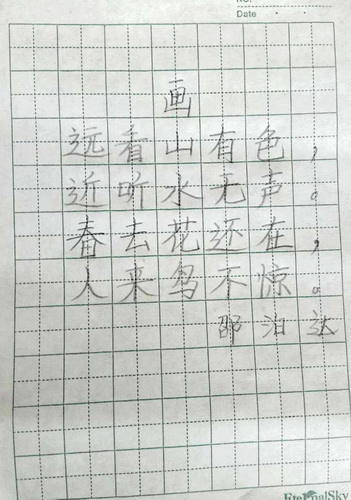 Date
画
远看山有色，
近听水无声。
春去花还在，
人来鸟不惊。
邵泊达
EternalSky